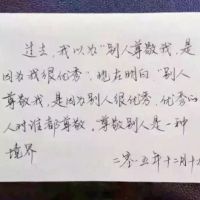 过去，我以为“别人尊敬我，是
因为我很优秀”，现在明白“别人
尊敬我，是因为别人很优秀，优秀的
人对谁都尊敬，尊敬别人是一种
境界
二〇一五年十二月十